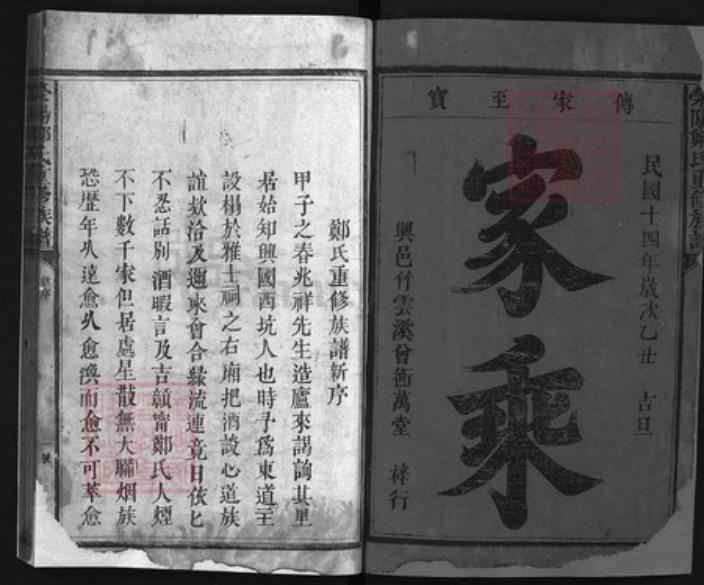 傳家至寶
民國十四年歲次乙丑 吉旦
家乘
興邑竹雲溪曾衝萬堂 梓行
鄭氏重修族譜新序
甲子之春兆祥先生造廬來謁詢其里
居始知興國西坑人也時予為東道主
設榻於雅士祠之右廂把酒談心道族
誼欸洽及邇來會合緣流連竟日依匕
不忍話別酒暇言及吉贛甯鄭氏人煙
不下數千家但居處星散無大聯烟族
恐歷年久遠愈久愈渙而愈不可萃愈
滎陽鄭氏重修族譜